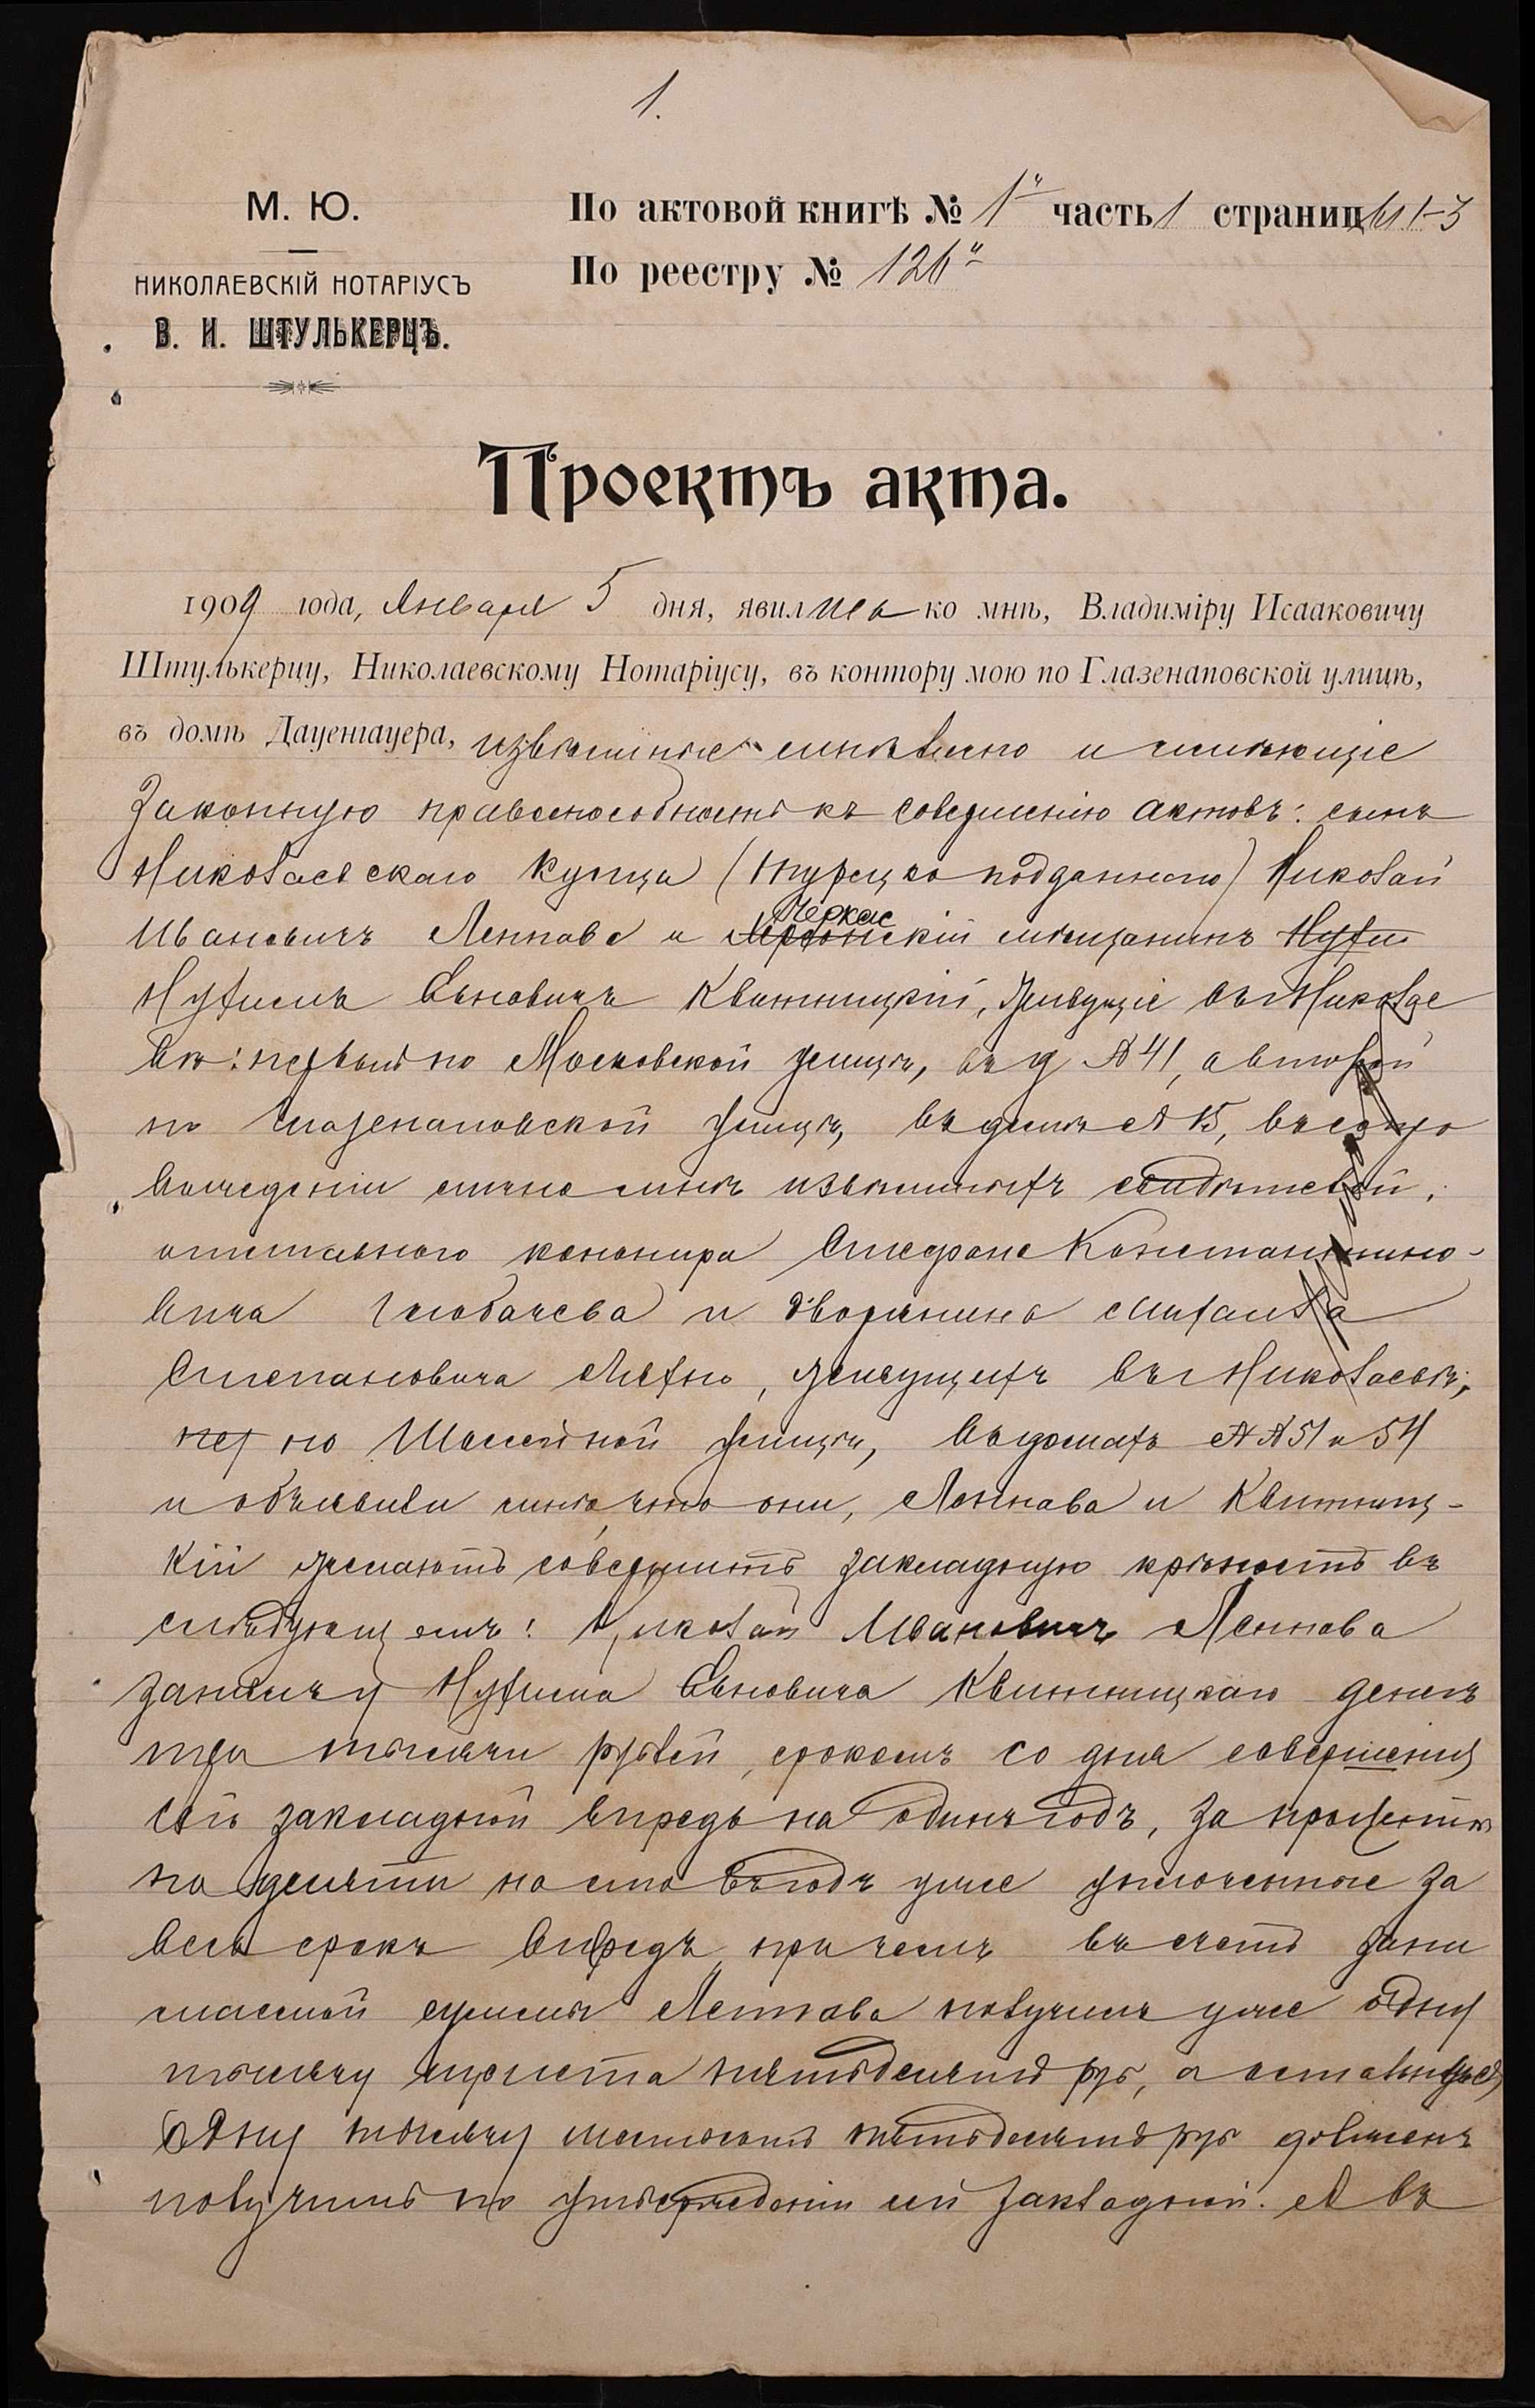 1.
М. Ю.
НИКОЛАЕВСКІЙ НОТАРІУСЪ
В. И. ШТУЛЬКЕРЦЪ.
По актовой книгѣ № 1 часть 1 страницы 1-3
По реестру № 126
Проектъ акта.
1909 года, Января 5 дня, явились ко мнѣ, Владиміру Исааковичу
Штулькерцу, Николаевскому Нотаріусу, въ контору мою по Глазенаповской улицѣ,
въ домѣ Дауенгауера, извѣстные мнѣ лично и имѣющіе
законную правоспособность къ совершенію актовъ: сынъ
Николаевскаго купца (турецко подданнаго) Николай
Ивановичъ Леппова и Херсонскій мѣщанинъ
Черкас
Нухимъ Квитницкій, живущіе въ г Николае
вѣ: первый по Московской улицѣ, въ д № 41, а второй
по Глазенаповской улицѣ, въ домѣ № 15, въ со
лично мнѣ извѣстныхъ свидѣтелей:
отставного канонира Стефана Константино-
вича и дворянина Михаила
Степановича живущихъ въ г Николаевѣ,
пер по Шоссейной улицѣ, въ домахъ №№ 51 и 54
и объявили мнѣ что они, Леппова и Квитниц-
кій желаютъ совершить закладную крѣпость въ
слѣдующемъ: Николай Ивановичъ Леппова
занялъ у Нухима Квитницкаго денегъ
три тысячи рублей, срокомъ со дня совершенія
сей закладной впредь на одинъ годъ, за проценты
по десяти на сто въ годъ уже уплоченные за
весь срокъ впередъ при чемъ въ счетъ зани
маемой суммы Леппова получилъ уже одну
тысячу триста пятьдесятъ руб, а остальные
одну тысячу шестьсотъ пятьдесятъ руб долженъ
получить по утвержденіи сей закладной. А въ